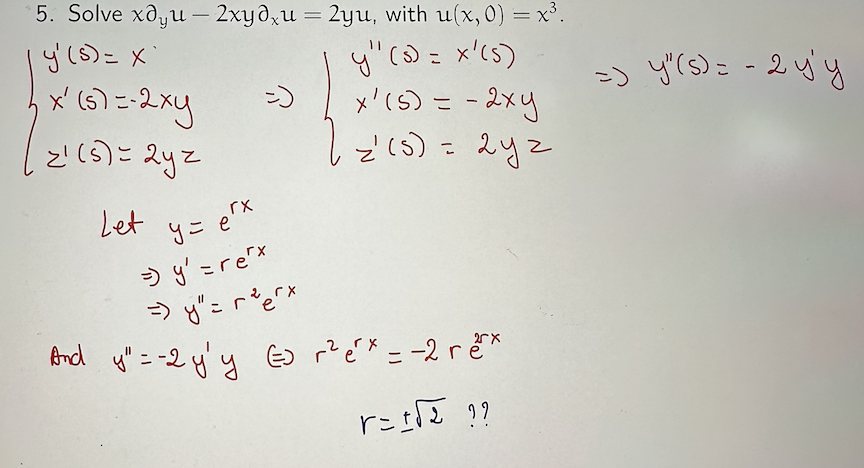 5. Solve x∂ᵧu − 2xy∂ₓu = 2yu, with u(x, 0) = x³.
{ y'(s) = x ⇒ { y''(s) = x'(s) ⇒ y''(s) = -2y'y
x'(s) = -2xy x'(s) = -2xy
z'(s) = 2yz z'(s) = 2yz
Let y = e^{rx}
⇒ y' = re^{rx}
⇒ y'' = r²e^{rx}
And y'' = -2y'y ⇔ r²e^{rx} = -2re^{2rx}
r = ±√2 ??